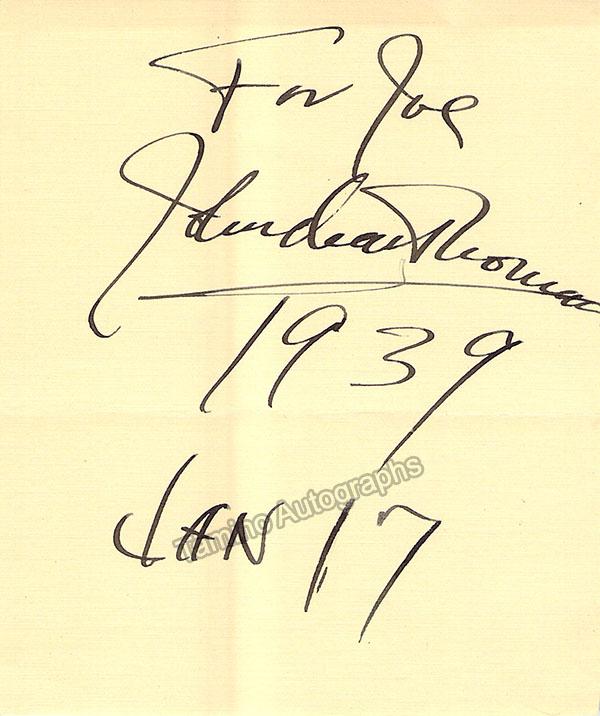 For Joe
John Charles Thomas
1939
JAN 17
Tamino Autographs